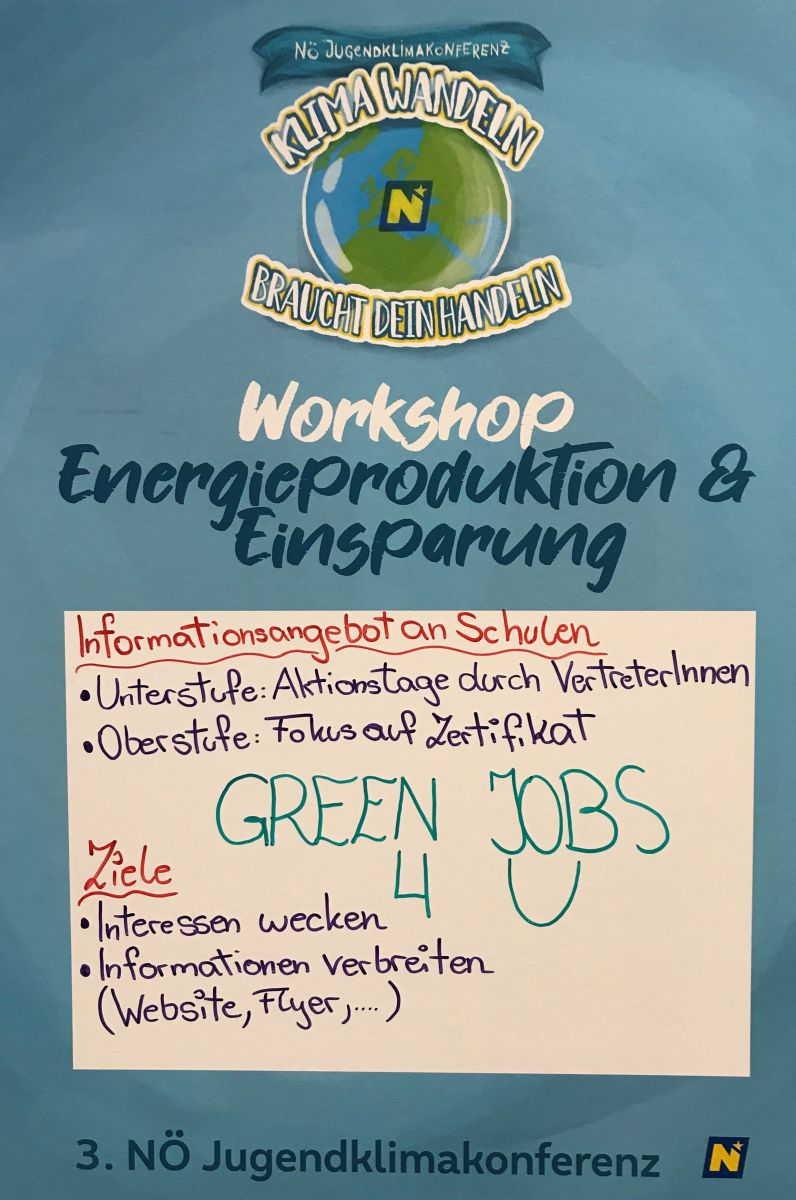 NÖ JUGENDKLIMAKONFERENZ
KLIMA WANDELN
N
BRAUCHT DEIN HANDELN
Workshop
Energieproduktion &
Einsparung
Informationsangebot an Schulen
• Unterstufe: Aktionstage durch VertreterInnen
• Oberstufe: Fokus auf Zertifikat
GREEN JOBS
4 U
Ziele
• Interessen wecken
• Informationen verbreiten
(Website, Flyer,....)
3. NÖ Jugendklimakonferenz N